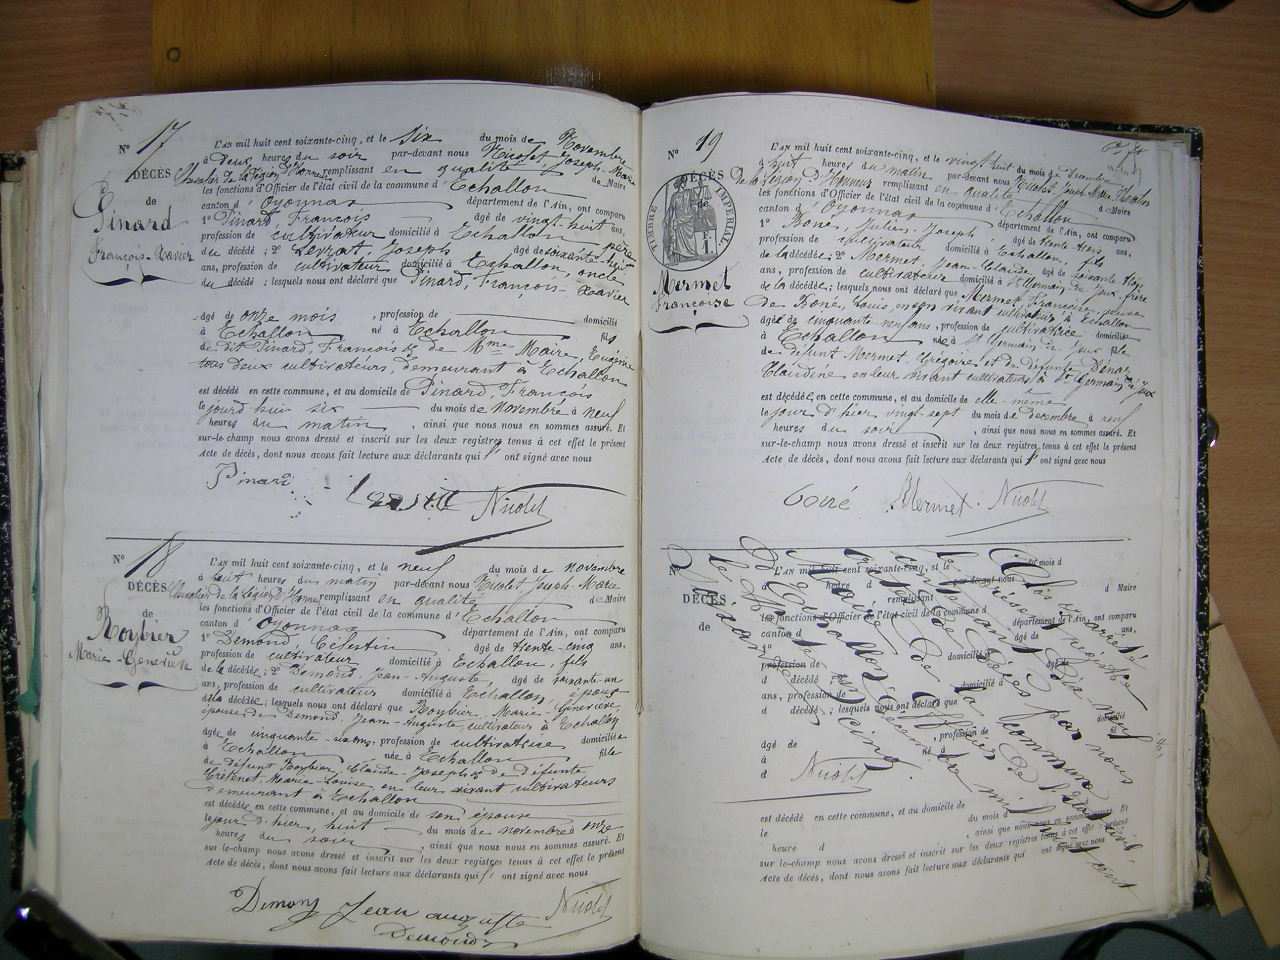 N° 17
DÉCÈS
de
Pinard
François-Xavier
L'AN mil huit cent soixante-cinq, et le six du mois de Novembre
à deux heures du soir par-devant nous Nicolet Joseph-Marie
Chevalier de la Légion d'Honneur remplissant en qualité de Maire
les fonctions d'Officier de l'état civil de la commune d'Echallon
canton d'Oyonnax département de l'Ain, ont comparu
1° Pinard François âgé de vingt-huit ans,
profession de cultivateur domicilié à Echallon, père
du décédé ; 2° Levrat, Joseph âgé de soixante-
ans, profession de cultivateur domicilié à Echallon, oncle
du décédé ; lesquels nous ont déclaré que Pinard, François-Xavier
âgé de onze mois , profession de domicilié
à Echallon né à Echallon fils
de dit Pinard, François & de Mme Maire, Eugénie
tous deux cultivateurs, demeurant à Echallon
est décédé en cette commune, et au domicile de Pinard, François
le jourd'hui six du mois de novembre à neuf
heures du matin , ainsi que nous nous en sommes assuré. Et
sur-le-champ nous avons dressé et inscrit sur les deux registres tenus à cet effet le présent
Acte de décès, dont nous avons fait lecture aux déclarants qui ont signé avec nous
Pinard Nicolet
N° 18
DÉCÈS
de
Roybier
Marie-Geneviève
L'AN mil huit cent soixante-cinq, et le neuf du mois de novembre
à huit heures du matin par-devant nous Nicolet Joseph-Marie
Chevalier de la Légion d'Honneur remplissant en qualité de Maire
les fonctions d'Officier de l'état civil de la commune d'Echallon
canton d'Oyonnax département de l'Ain, ont comparu
1° Demond, Célestin âgé de trente-cinq ans,
profession de cultivateur domicilié à Echallon, fils
de la décédée ; 2° Demond, Jean-Auguste, âgé de soixante-un
ans, profession de cultivateur domicilié à Echallon époux
de la décédée ; lesquels nous ont déclaré que Roybier, Marie-Geneviève,
épouse de Demond, Jean-Auguste, cultivateur à Echallon
âgée de cinquante- ans, profession de cultivatrice domiciliée
à Echallon née à Echallon fille
de défunt Roybier, Claude-Joseph & de défunte
Marie-Louise, en leur vivant cultivateurs
demeurant à Echallon
est décédée en cette commune, et au domicile de son épouse
le jour d'hier, huit du mois de novembre à onze
heures du soir , ainsi que nous nous en sommes assuré. Et
sur-le-champ nous avons dressé et inscrit sur les deux registres tenus à cet effet le présent
Acte de décès, dont nous avons fait lecture aux déclarants qui ont signé avec nous
Demond Jean auguste Nicolet
Demond
N° 19
DÉCÈS
de
TIMBRE IMPÉRIAL
Mermet
Françoise
L'AN mil huit cent soixante-cinq, et le vingt huit du mois de décembre
à huit heures du matin par-devant nous Nicolet Joseph-Marie Chevalier
de la Légion d'Honneur remplissant en qualité d Maire
les fonctions d'Officier de l'état civil de la commune d'Echallon
canton d'Oyonnax département de l'Ain, ont comparu
1° Boné, Julien-Joseph âgé de trente trois ans,
profession de cultivateur domicilié à Echallon, fils
de la décédée ; 2° Mermet, Jean-Claude, âgé de soixante
ans, profession de cultivateur domicilié à St Germain de Joux, frère
de la décédée ; lesquels nous ont déclaré que Mermet, Françoise, veuve
de Boné, Louis, en son vivant cultivateur à Echallon
âgée de cinquante neuf ans, profession de cultivatrice, domiciliée
à Echallon née à St Germain de Joux fille
de défunt Mermet, Grégoire & de défunte
Claudine en leur vivant cultivateurs à St Germain de Joux
est décédée en cette commune, et au domicile de elle-même
le jour d'hier vingt-sept du mois de Décembre à neuf
heures du soir , ainsi que nous nous en sommes assuré. Et
sur-le-champ nous avons dressé et inscrit sur les deux registres tenus à cet effet le présent
Acte de décès, dont nous avons fait lecture aux déclarants qui ont signé avec nous
Boné Mermet Nicolet
N°
DÉCÈS
de
L'AN mil huit cent soixante-cinq, et le du mois d
à heure d par-devant nous
remplissant d Maire
les fonctions d'Officier de l'état civil de la commune d
canton d département de l'Ain, ont comparu
1° âgé de ans,
profession de domicilié
d décédé ; 2° âgé de
ans, profession de domicilié à
d décédé ; lesquels nous ont déclaré que
âgé de , profession de domicilié
à né à
d
est décédé en cette commune, et au domicile de
le du mois d à
heure d , ainsi que nous nous en sommes assuré. Et
sur-le-champ nous avons dressé et inscrit sur les deux registres tenus à cet effet le présent
Acte de décès, dont nous avons fait lecture aux déclarants qui ont signé avec nous
Clos et arrêté
le présent registre
contenant dix neuf
actes de Décès par nous
Maire & officier de
d'Echallon
soixante cinq.
Nicolet